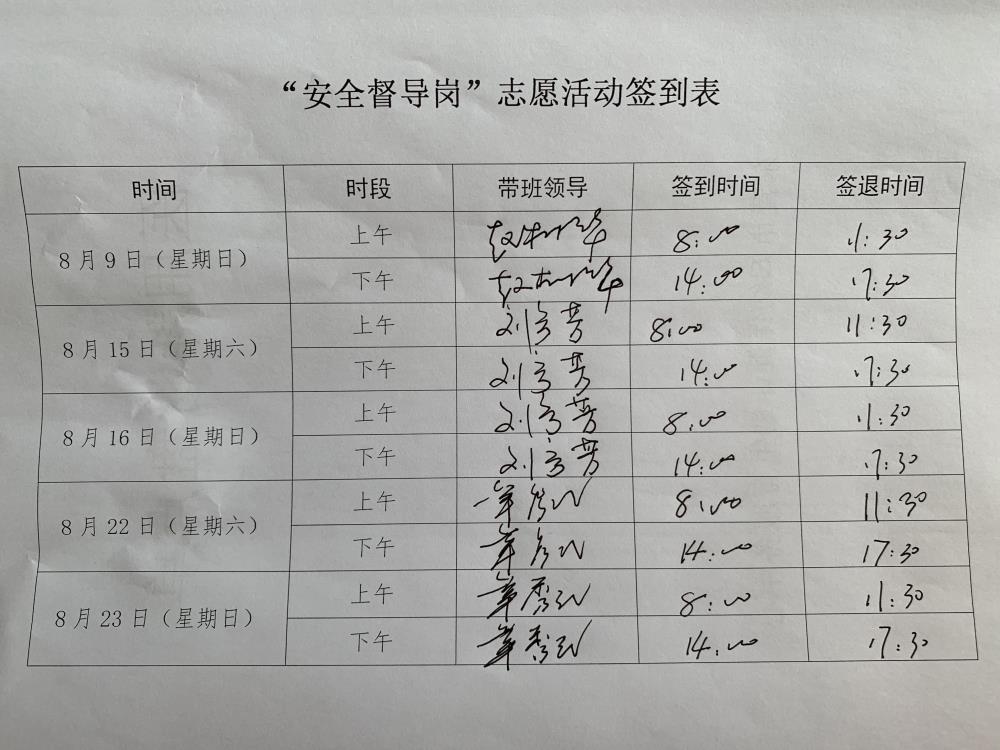 “安全督导岗”志愿活动签到表
时间 时段 带班领导 签到时间 签退时间
8月9日（星期日） 上午 8:00 11:30
下午 14:00 17:30
8月15日（星期六） 上午 刘 芳 8:00 11:30
下午 刘 芳 14:00 17:30
8月16日（星期日） 上午 刘 芳 8:00 11:30
下午 刘 芳 14:00 17:30
8月22日（星期六） 上午 章 8:00 11:30
下午 章 14:00 17:30
8月23日（星期日） 上午 章秀 8:00 11:30
下午 章秀 14:00 17:30